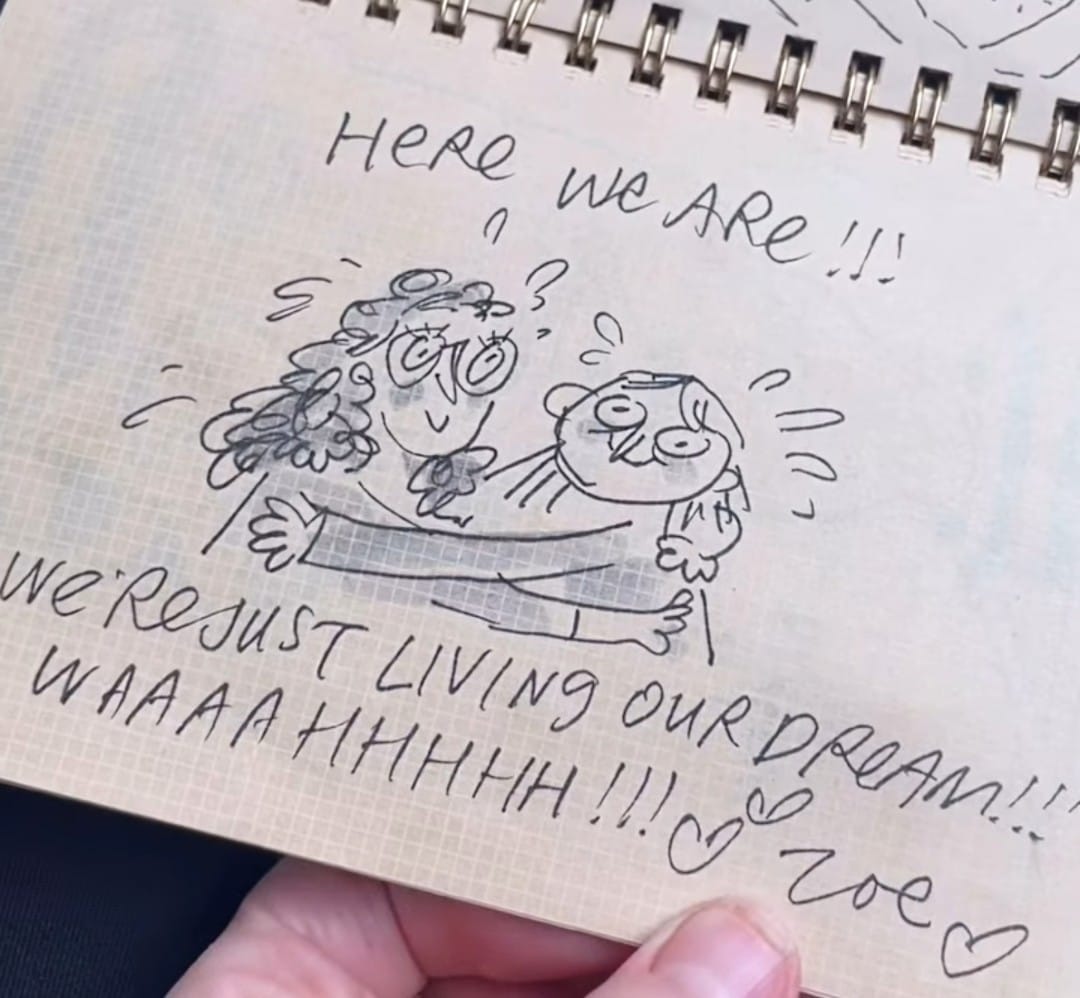 HeRe we ARe!!!
we'Re JUST LIVINg OUR DReAM!!!
WAAAAHHHHH!!!
Zoe